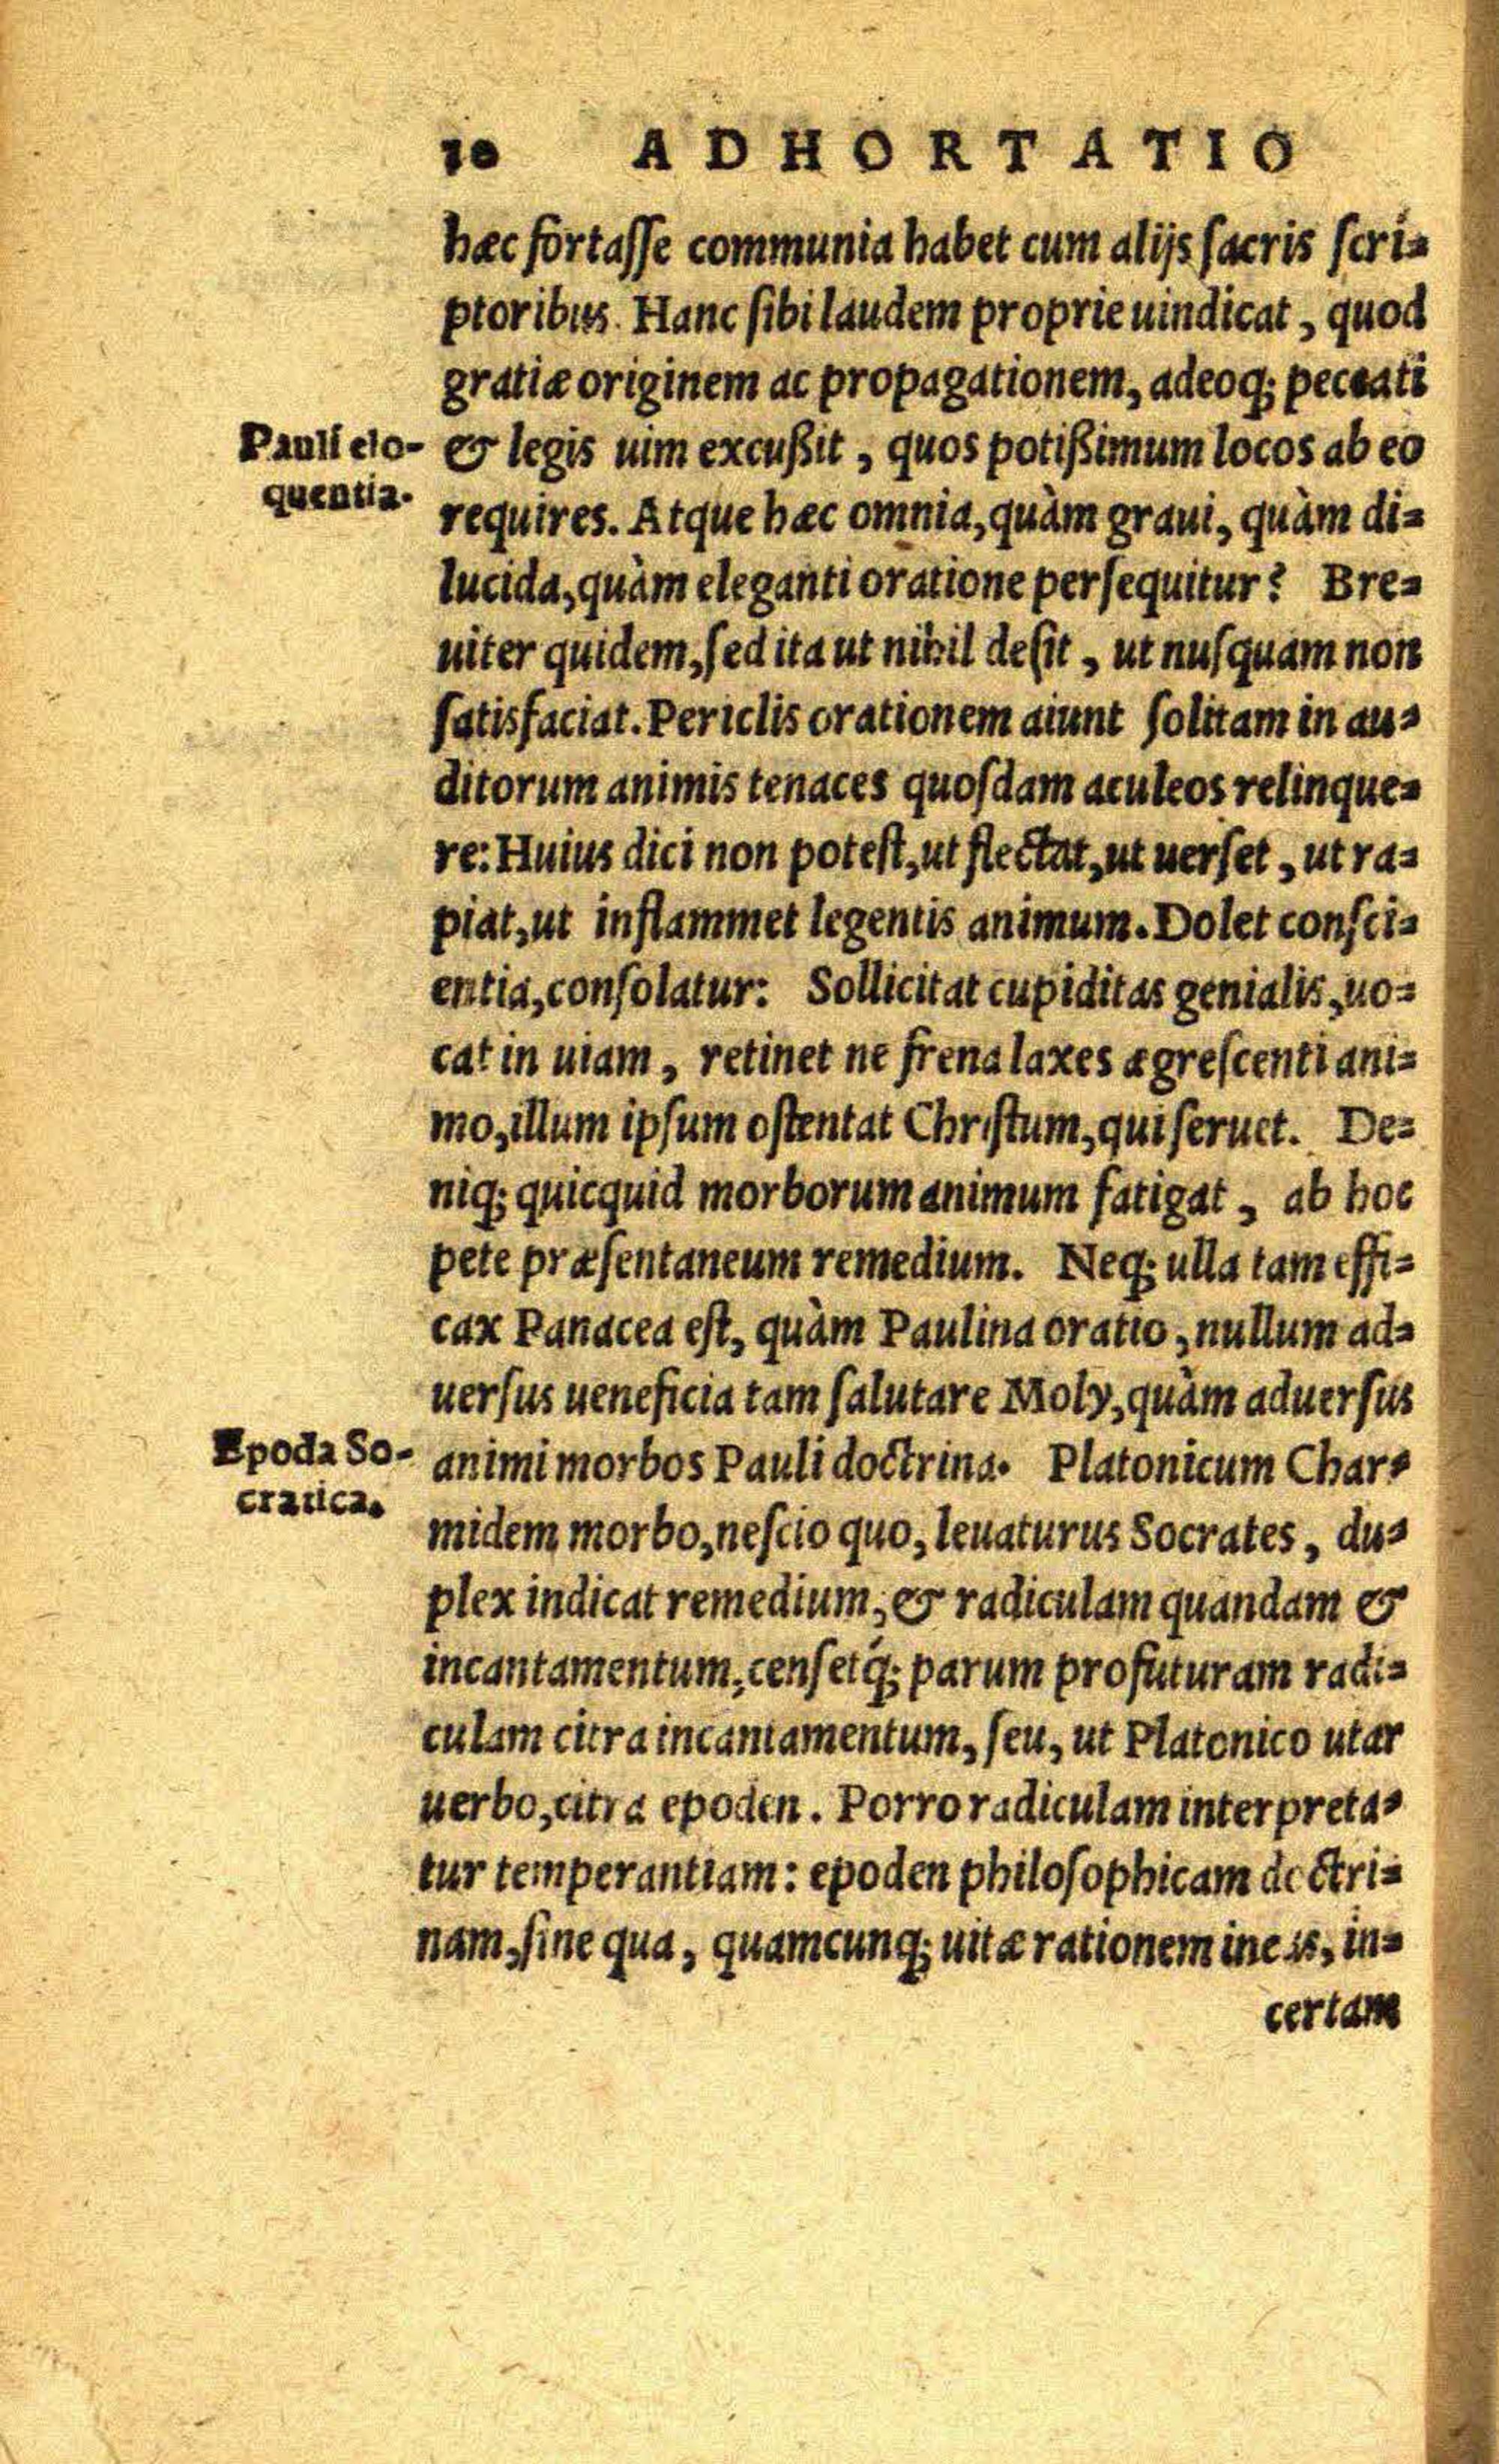 10 ADHORTATIO
hæc fortaſſe communia habet cum alijs ſacris ſcri=
ptoribus. Hanc ſibi laudem proprie uindicat, quod
gratiæ originem ac propagationem, adeoq; peccati
Pauli elo-
quentia.
& legis uim excußit, quos potißimum locos ab eo
requires. Atque hæc omnia, quàm graui, quàm di=
lucida, quàm eleganti oratione perſequitur? Bre=
uiter quidem, ſed ita ut nihil deſit, ut nuſquam non
ſatisfaciat. Periclis orationem aiunt ſolitam in au=
ditorum animis tenaces quoſdam aculeos relinque=
re: Huius dici non poteſt, ut flectat, ut uerſet, ut ra=
piat, ut inflammet legentis animum. Dolet conſci=
entia, conſolatur: Sollicitat cupiditas genialis, uo=
cat in uiam, retinet ne frena laxes ægreſcenti ani=
mo, illum ipſum oſtentat Chriſtum, qui ſeruet. De=
niq; quicquid morborum animum fatigat, ab hoc
pete præſentaneum remedium. Neq; ulla tam effi=
cax Panacea eſt, quàm Paulina oratio, nullum ad=
uerſus ueneficia tam ſalutare Moly, quàm aduerſus
Epoda So-
cratica.
animi morbos Pauli doctrina. Platonicum Char=
midem morbo, neſcio quo, leuaturus Socrates, du=
plex indicat remedium, & radiculam quandam &
incantamentum, cenſetq́; parum profuturam radi=
culam citra incantamentum, ſeu, ut Platonico utar
uerbo, citra epoden. Porro radiculam interpreta=
tur temperantiam: epoden philoſophicam doctri=
nam, ſine qua, quamcunq; uitæ rationem ineas, in=
certam